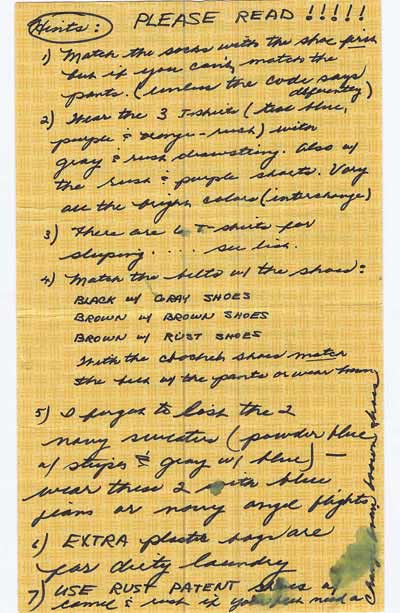 Hints: PLEASE READ !!!!!
1) Match the socks with the shoe first
but if you can't, match the
pants. (unless the code says
differently)
2) Wear the 3 T-shirts (teal blue,
purple & orange-rush) with
gray & rush drawstring. Also w/
the rush & purple shorts. Vary
all the bright colors (interchange)
3) There are 6 T-shirts for
sleeping.... see list.
4) Match the belts w/ the shoes:
BLACK w/ GRAY SHOES
BROWN w/ BROWN SHOES
BROWN w/ RUST SHOES
With the shoes match
the w/ the pants or wear
5) I forgot to list the 2
navy sweaters (powder blue
w/ stripes & gray w/ blue) —
wear these 2 with blue
jeans or navy angel flights
6) EXTRA plastic bags are
for dirty laundry
7) USE RUST PATENT shoes w/
camel & rush if you need a
brown shoes